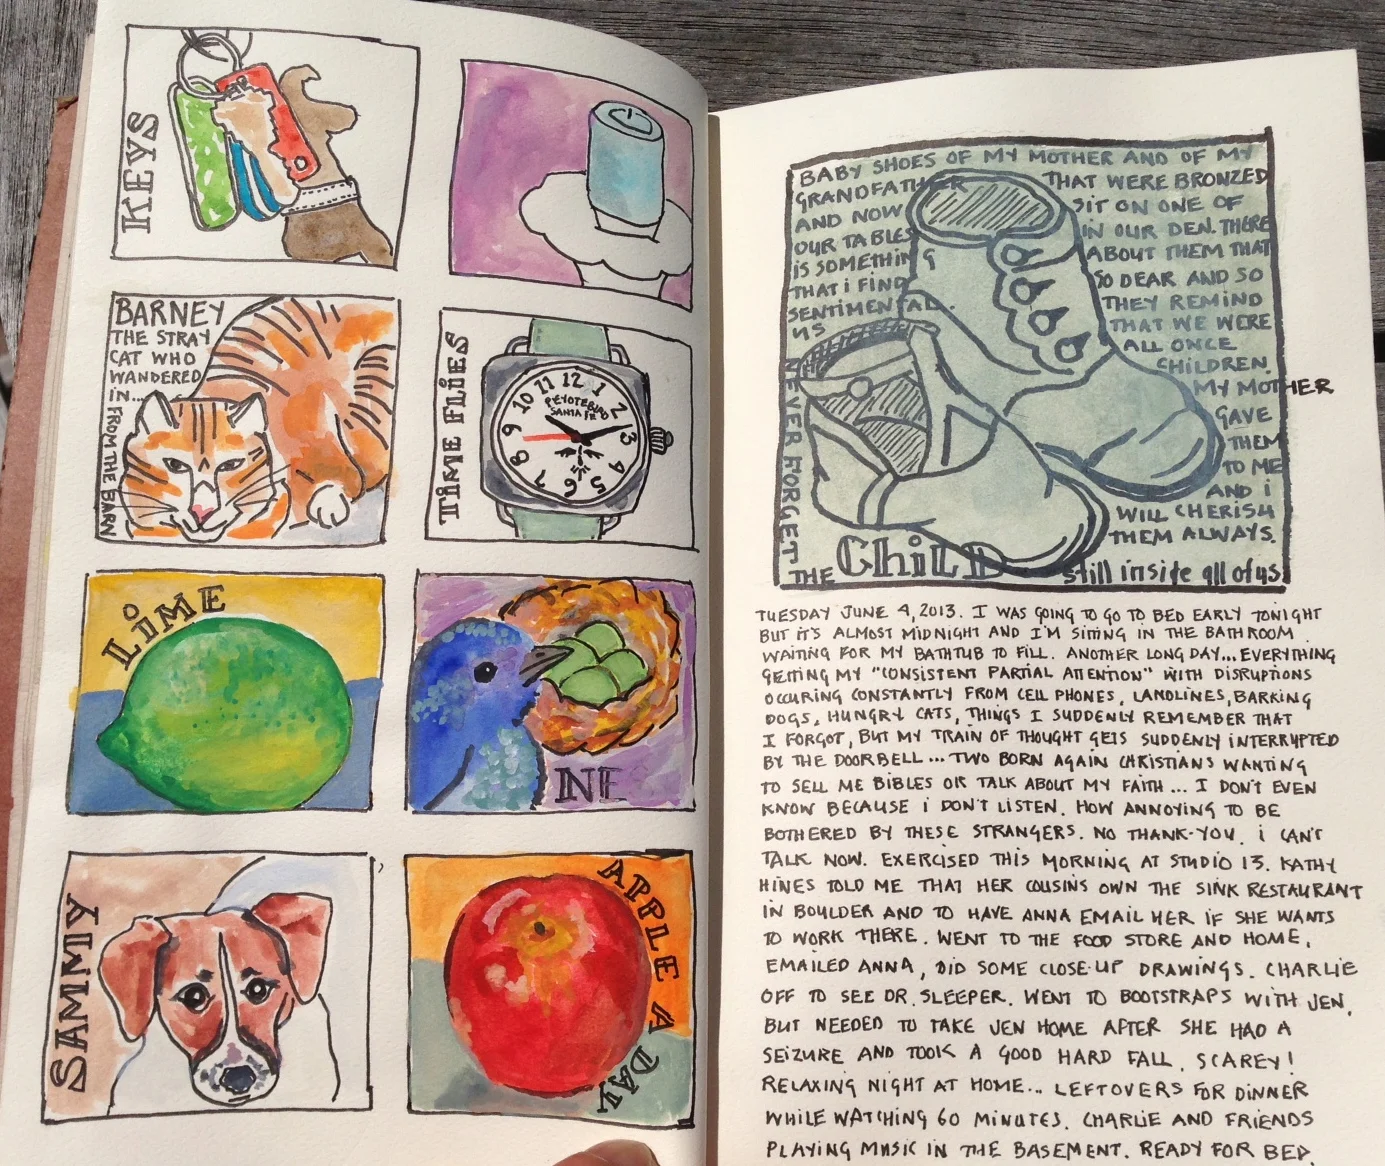 KEYS
BARNEY
THE STRAY
CAT WHO
WANDERED
IN...
FROM THE BARN
TIME FLIES
11 12 1
10 2
9 3
8 4
7 6 5
PEYOTEBIRD
SANTA FE
LIME
NE
SAMMY
APPLE A DAY
BABY SHOES OF MY MOTHER AND OF MY
GRANDFATHER THAT WERE BRONZED
AND NOW SIT ON ONE OF
OUR TABLES IN OUR DEN. THERE
IS SOMETHING ABOUT THEM THAT
THAT I FIND SO DEAR AND SO
SENTIMENTAL. THEY REMIND
US THAT WE WERE
ALL ONCE
CHILDREN.
MY MOTHER
GAVE
THEM
TO ME
AND I
WILL CHERISH
THEM ALWAYS.
NEVER FORGET THE CHILD still inside all of us
TUESDAY JUNE 4, 2013. I WAS GOING TO GO TO BED EARLY TONIGHT
BUT IT'S ALMOST MIDNIGHT AND I'M SITTING IN THE BATHROOM
WAITING FOR MY BATHTUB TO FILL. ANOTHER LONG DAY... EVERYTHING
GETTING MY "CONSISTENT PARTIAL ATTENTION" WITH DISRUPTIONS
OCCURING CONSTANTLY FROM CELL PHONES, LANDLINES, BARKING
DOGS, HUNGRY CATS, THINGS I SUDDENLY REMEMBER THAT
I FORGOT, BUT MY TRAIN OF THOUGHT GETS SUDDENLY INTERRUPTED
BY THE DOORBELL... TWO BORN AGAIN CHRISTIANS WANTING
TO SELL ME BIBLES OR TALK ABOUT MY FAITH... I DON'T EVEN
KNOW BECAUSE I DON'T LISTEN. HOW ANNOYING TO BE
BOTHERED BY THESE STRANGERS. NO THANK-YOU. I CAN'T
TALK NOW. EXERCISED THIS MORNING AT STUDIO 13. KATHY
HINES TOLD ME THAT HER COUSINS OWN THE SINK RESTAURANT
IN BOULDER AND TO HAVE ANNA EMAIL HER IF SHE WANTS
TO WORK THERE. WENT TO THE FOOD STORE AND HOME,
EMAILED ANNA, DID SOME CLOSE-UP DRAWINGS. CHARLIE
OFF TO SEE DR. SLEEPER. WENT TO BOOTSTRAPS WITH JEN,
BUT NEEDED TO TAKE JEN HOME AFTER SHE HAD A
SEIZURE AND TOOK A GOOD HARD FALL. SCAREY!
RELAXING NIGHT AT HOME... LEFTOVERS FOR DINNER
WHILE WATCHING 60 MINUTES. CHARLIE AND FRIENDS
PLAYING MUSIC IN THE BASEMENT. READY FOR BED.